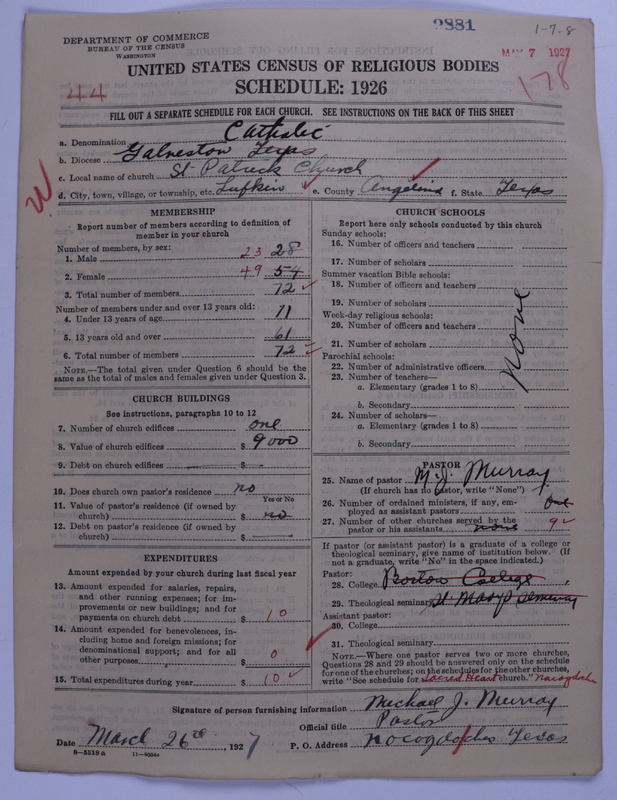 9881
1-7-8
DEPARTMENT OF COMMERCE
BUREAU OF THE CENSUS
WASHINGTON
MAY 7 1927
178
UNITED STATES CENSUS OF RELIGIOUS BODIES
44
SCHEDULE: 1926
FILL OUT A SEPARATE SCHEDULE FOR EACH CHURCH. SEE INSTRUCTIONS ON THE BACK OF THIS SHEET
a. Denomination Catholic
b. Diocese Galveston Texas
c. Local name of church St Patrick Church
d. City, town, village, or township, etc. Lufkin e. County Angelina f. State Texas
MEMBERSHIP
Report number of members according to definition of
member in your church
Number of members, by sex:
1. Male 23 28
2. Female 49 54
3. Total number of members 72
Number of members under and over 13 years old:
4. Under 13 years of age 11
5. 13 years old and over 61
6. Total number of members 72
NOTE.—The total given under Question 6 should be
same as the total of males and females given under Question 3.
CHURCH BUILDINGS
See instructions, paragraphs 10 to 12
7. Number of church edifices one
8. Value of church edifices $ 9000
9. Debt on church edifices $
10. Does church own pastor's residence no
Yes or No
11. Value of pastor's residence (if owned by
church) $ no
12. Debt on pastor's residence (if owned by
church) $
EXPENDITURES
Amount expended by your church during last fiscal year
13. Amount expended for salaries, repairs,
and other running expenses; for im-
provements or new buildings; and for
payments on church debt $ 10
14. Amount expended for benevolences, in-
cluding home and foreign missions; for
denominational support; and for all
other purposes $ 0
15. Total expenditures during year $ 10
CHURCH SCHOOLS
Report here only schools conducted by this church
Sunday schools:
16. Number of officers and teachers
17. Number of scholars
Summer vacation Bible schools:
18. Number of officers and teachers
19. Number of scholars
Week-day religious schools:
20. Number of officers and teachers
21. Number of scholars
none
Parochial schools:
22. Number of administrative officers
23. Number of teachers—
a. Elementary (grades 1 to 8)
b. Secondary
24. Number of scholars—
a. Elementary (grades 1 to 8)
b. Secondary
PASTOR
25. Name of pastor M. J. Murray
(If church has no pastor, write "None")
26. Number of ordained ministers, if any, em-
ployed as assistant pastors
27. Number of other churches served by the
pastor or his assistants none 9
If pastor (or assistant pastor) is a graduate of a college or
theological seminary, give name of institution below. (If
not a graduate, write "No" in the space indicated.)
Pastor:
28. College Boston College
29. Theological seminary St Marys Seminary
Assistant pastor:
30. College
31. Theological seminary
NOTE.—Where one pastor serves two or more churches,
Questions 28 and 29 should be answered only on the schedule
for one of the churches; on the schedules for the other churches,
write "See schedule for Sacred Heart church." Nacogdoch
Signature of person furnishing information Michael J. Murray
Official title Pastor
Date March 26th, 1927 P. O. Address Nocogdoches Texas
8-5518a 11-9504